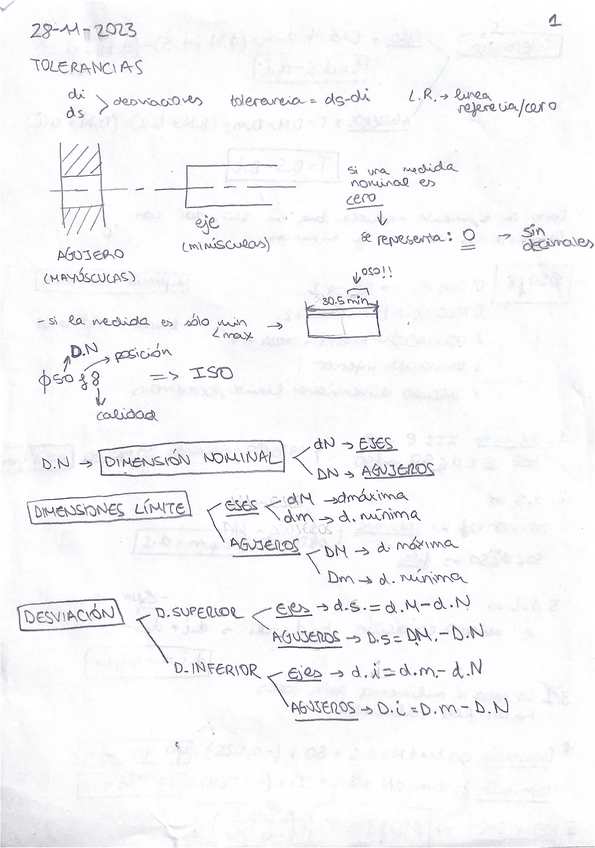 28-11-2023
1
TOLERANCIAS
di
ds > desviaciones tolerancia = ds-di L.R. → linea
referecia/cero
si una medida
nominal es
cero
se representa: 0 → sin
decimales
eje
(minúsculas)
AGUJERO
(MAYÚSCULAS)
↓oso!!
30.5 min
- si la medida es sólo min →
max
D.N
posición
ϕ50 f 8 => ISO
calidad
D.N → DIMENSIÓN NOMINAL
dN → EJES
DN → AGUJEROS
DIMENSIONES LÍMITE
EJES
dM → dmáxima
dm → d. mínima
AGUJEROS
DM → d. máxima
Dm → d. mínima
DESVIACIÓN
D.SUPERIOR
Ejes → d.s. = d.M-d.N
AGUJEROS → D.s = DM.-D.N
D.INFERIOR
Ejes → d.i = d.m.-d.N
AGUJEROS → D.i = D.m - D.N